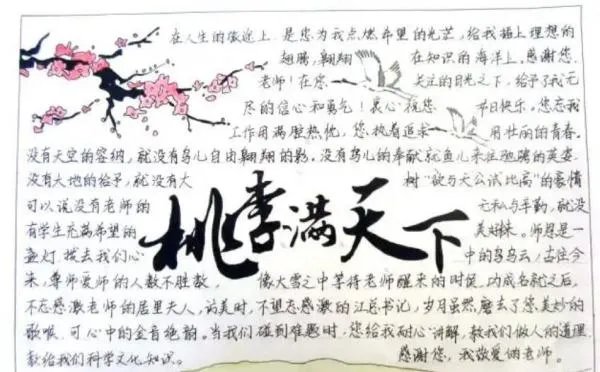 在人生的旅途上 是您为我点燃希望的光芒,给我插上理想的
翅膀,翱翔 在知识的海洋上,感谢您,
老师!在您 关注的目光之下,给予了我无
尽的信心和勇气!衷心祝您 节日快乐。您忘我
工作用满腔热忱,您执着追求 用壮丽的青春。
没有天空的容纳,就没有鸟儿自由翱翔的影。没有鸟儿的奉献就鱼儿来往驰骋的英姿。
没有大地的给予,就没有大 树“欲与天公试比高”的豪情
可以说没有老师的 无私与辛勤,就没
有学生充满希望的 美好 。师恩是一
盏灯,拨去我们心 中的乌乌云,古往今
桃李满天下
来,尊师爱师的人数不胜数, 像大雪之中等待老师醒来的时候,功成名就之后,
不忘感激老师的居里夫人,访美时,不望忘感激的江总书记,岁月虽然磨去了您美妙的
歌喉,可心中的金音绝韵。当我们碰到难题时,您给我耐心讲解,教我们做人的道理
教给我们科学文化知识。 感谢您,我敬爱的老师。